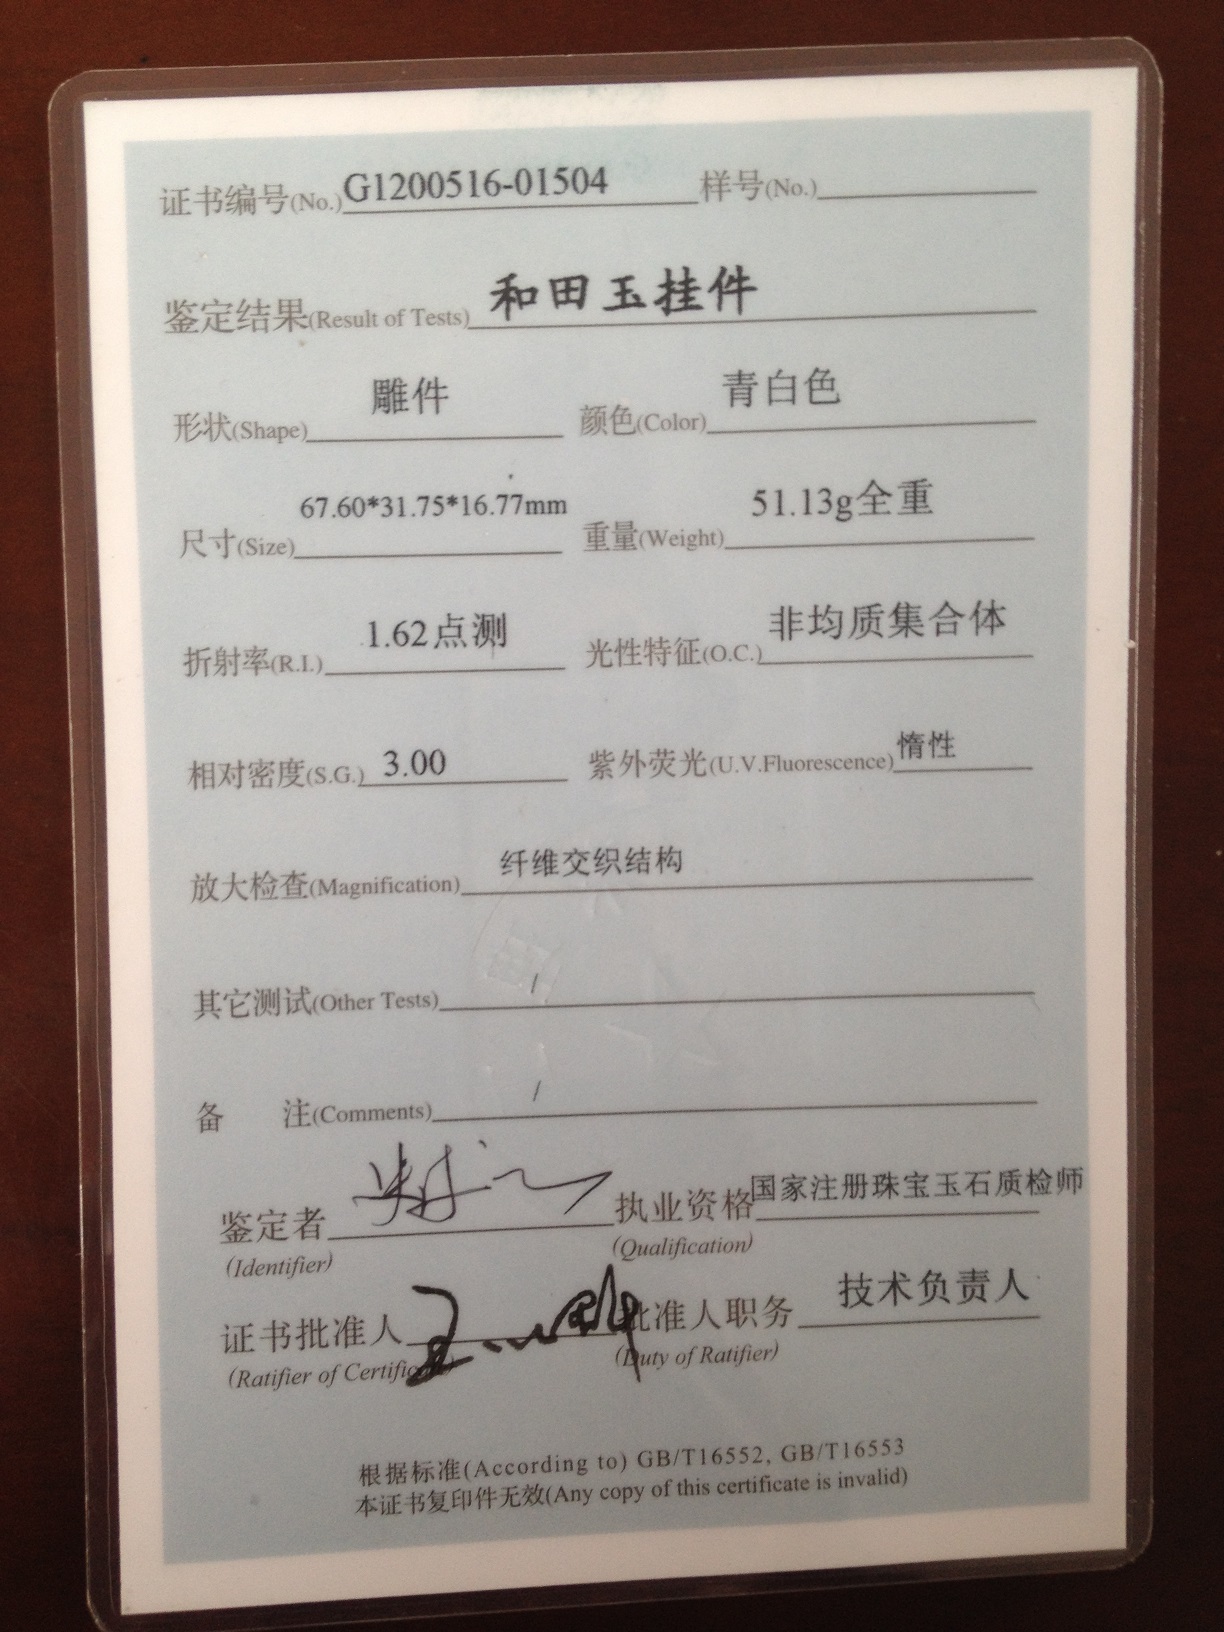 证书编号(No.) G1200516-01504 样号(No.)
鉴定结果(Result of Tests) 和田玉挂件
形状(Shape) 雕件 颜色(Color) 青白色
尺寸(Size) 67.60*31.75*16.77mm 重量(Weight) 51.13g全重
折射率(R.I.) 1.62点测 光性特征(O.C.) 非均质集合体
相对密度(S.G.) 3.00 紫外荧光(U.V.Fluorescence) 惰性
放大检查(Magnification) 纤维交织结构
其它测试(Other Tests) /
备 注(Comments) /
鉴定者 执业资格 国家注册珠宝玉石质检师
(Identifier) (Qualification)
证书批准人 批准人职务 技术负责人
(Ratifier of Certificate) (Duty of Ratifier)
根据标准(According to) GB/T16552, GB/T16553
本证书复印件无效(Any copy of this certificate is invalid)